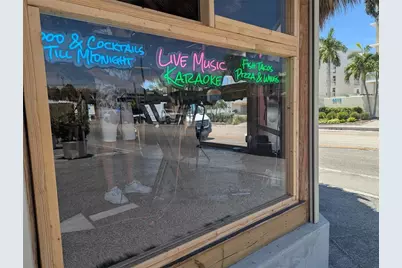 ood & Cocktails
Till Midnight
Live Music
Karaoke
Fish Tacos
Pizza & Wings